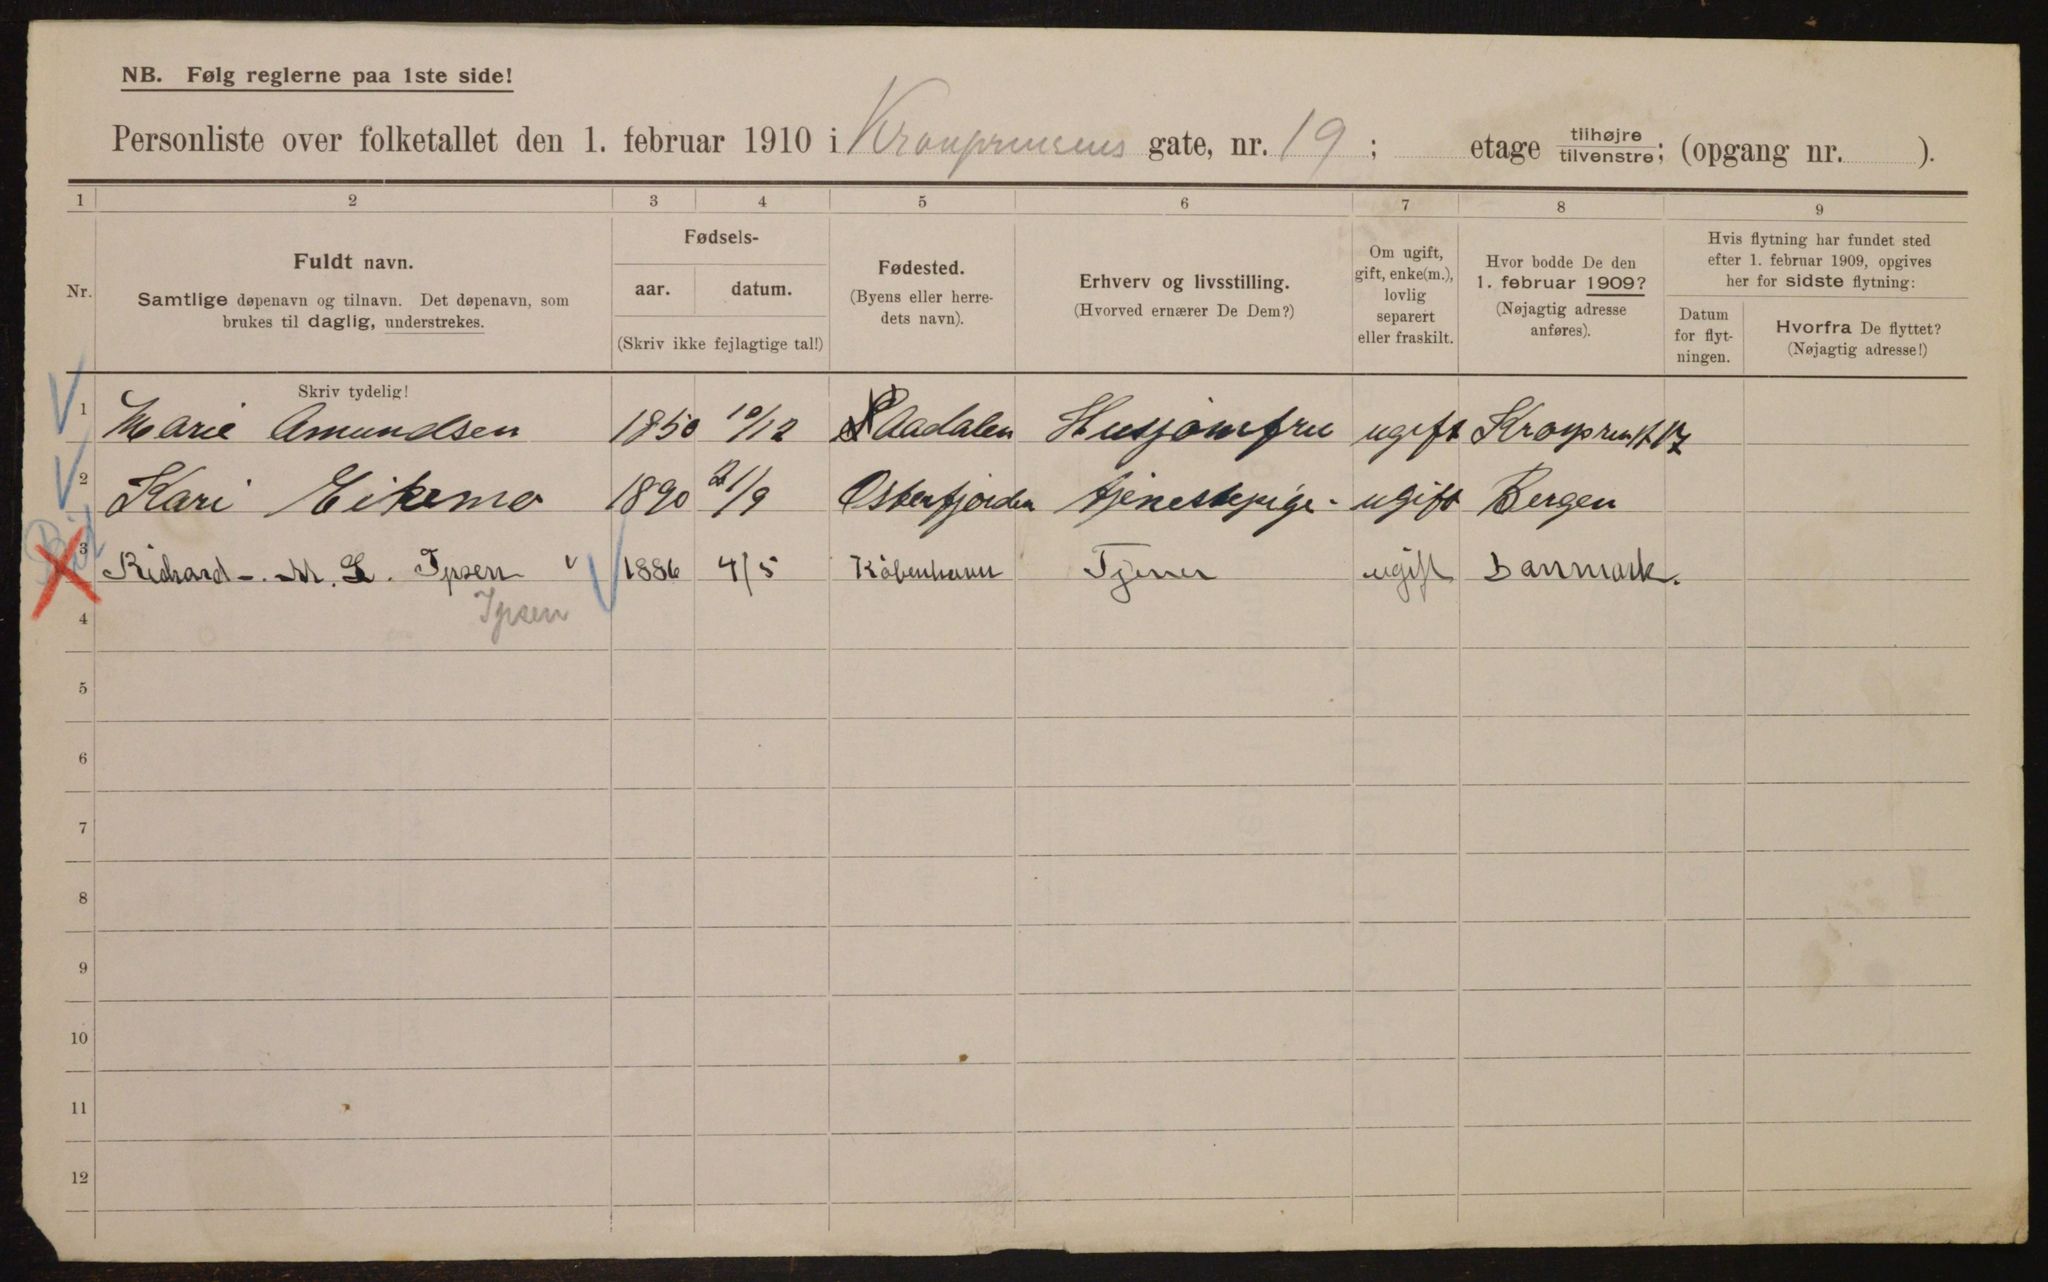 NB. Følg reglerne paa 1ste side!
Personliste over folketallet den 1. februar 1910 i Kronprinsens gate, nr. 19 ; etage tilhøjre/tilvenstre; (opgang nr. ).
1 2 3 4 5 6 7 8 9
Nr.
Fuldt navn.
Samtlige døpenavn og tilnavn. Det døpenavn, som
brukes til daglig, understrekes.
Skriv tydelig!
Fødsels-
aar. datum.
(Skriv ikke fejlagtige tal!)
Fødested.
(Byens eller herre-
dets navn).
Erhverv og livsstilling.
(Hvorved ernærer De Dem?)
Om ugift,
gift, enke(m.),
lovlig
separert
eller fraskilt.
Hvor bodde De den
1. februar 1909?
(Nøjagtig adresse
anføres).
Hvis flytning har fundet sted
efter 1. februar 1909, opgives
her for sidste flytning:
Datum
for flyt-
ningen.
Hvorfra De flyttet?
(Nøjagtig adresse!)
1 Marie Amundsen 1850 10/12 Aadalen Husjomfru ugift Kronprins 17
2 Kari Eikemo 1890 21/9 Osterfjorden tjenestepige ugift Bergen
3 Richard M. L. Ipsen 1886 4/5 København Tjener ugift Danmark.
Ipsen
4
5
6
7
8
9
10
11
12